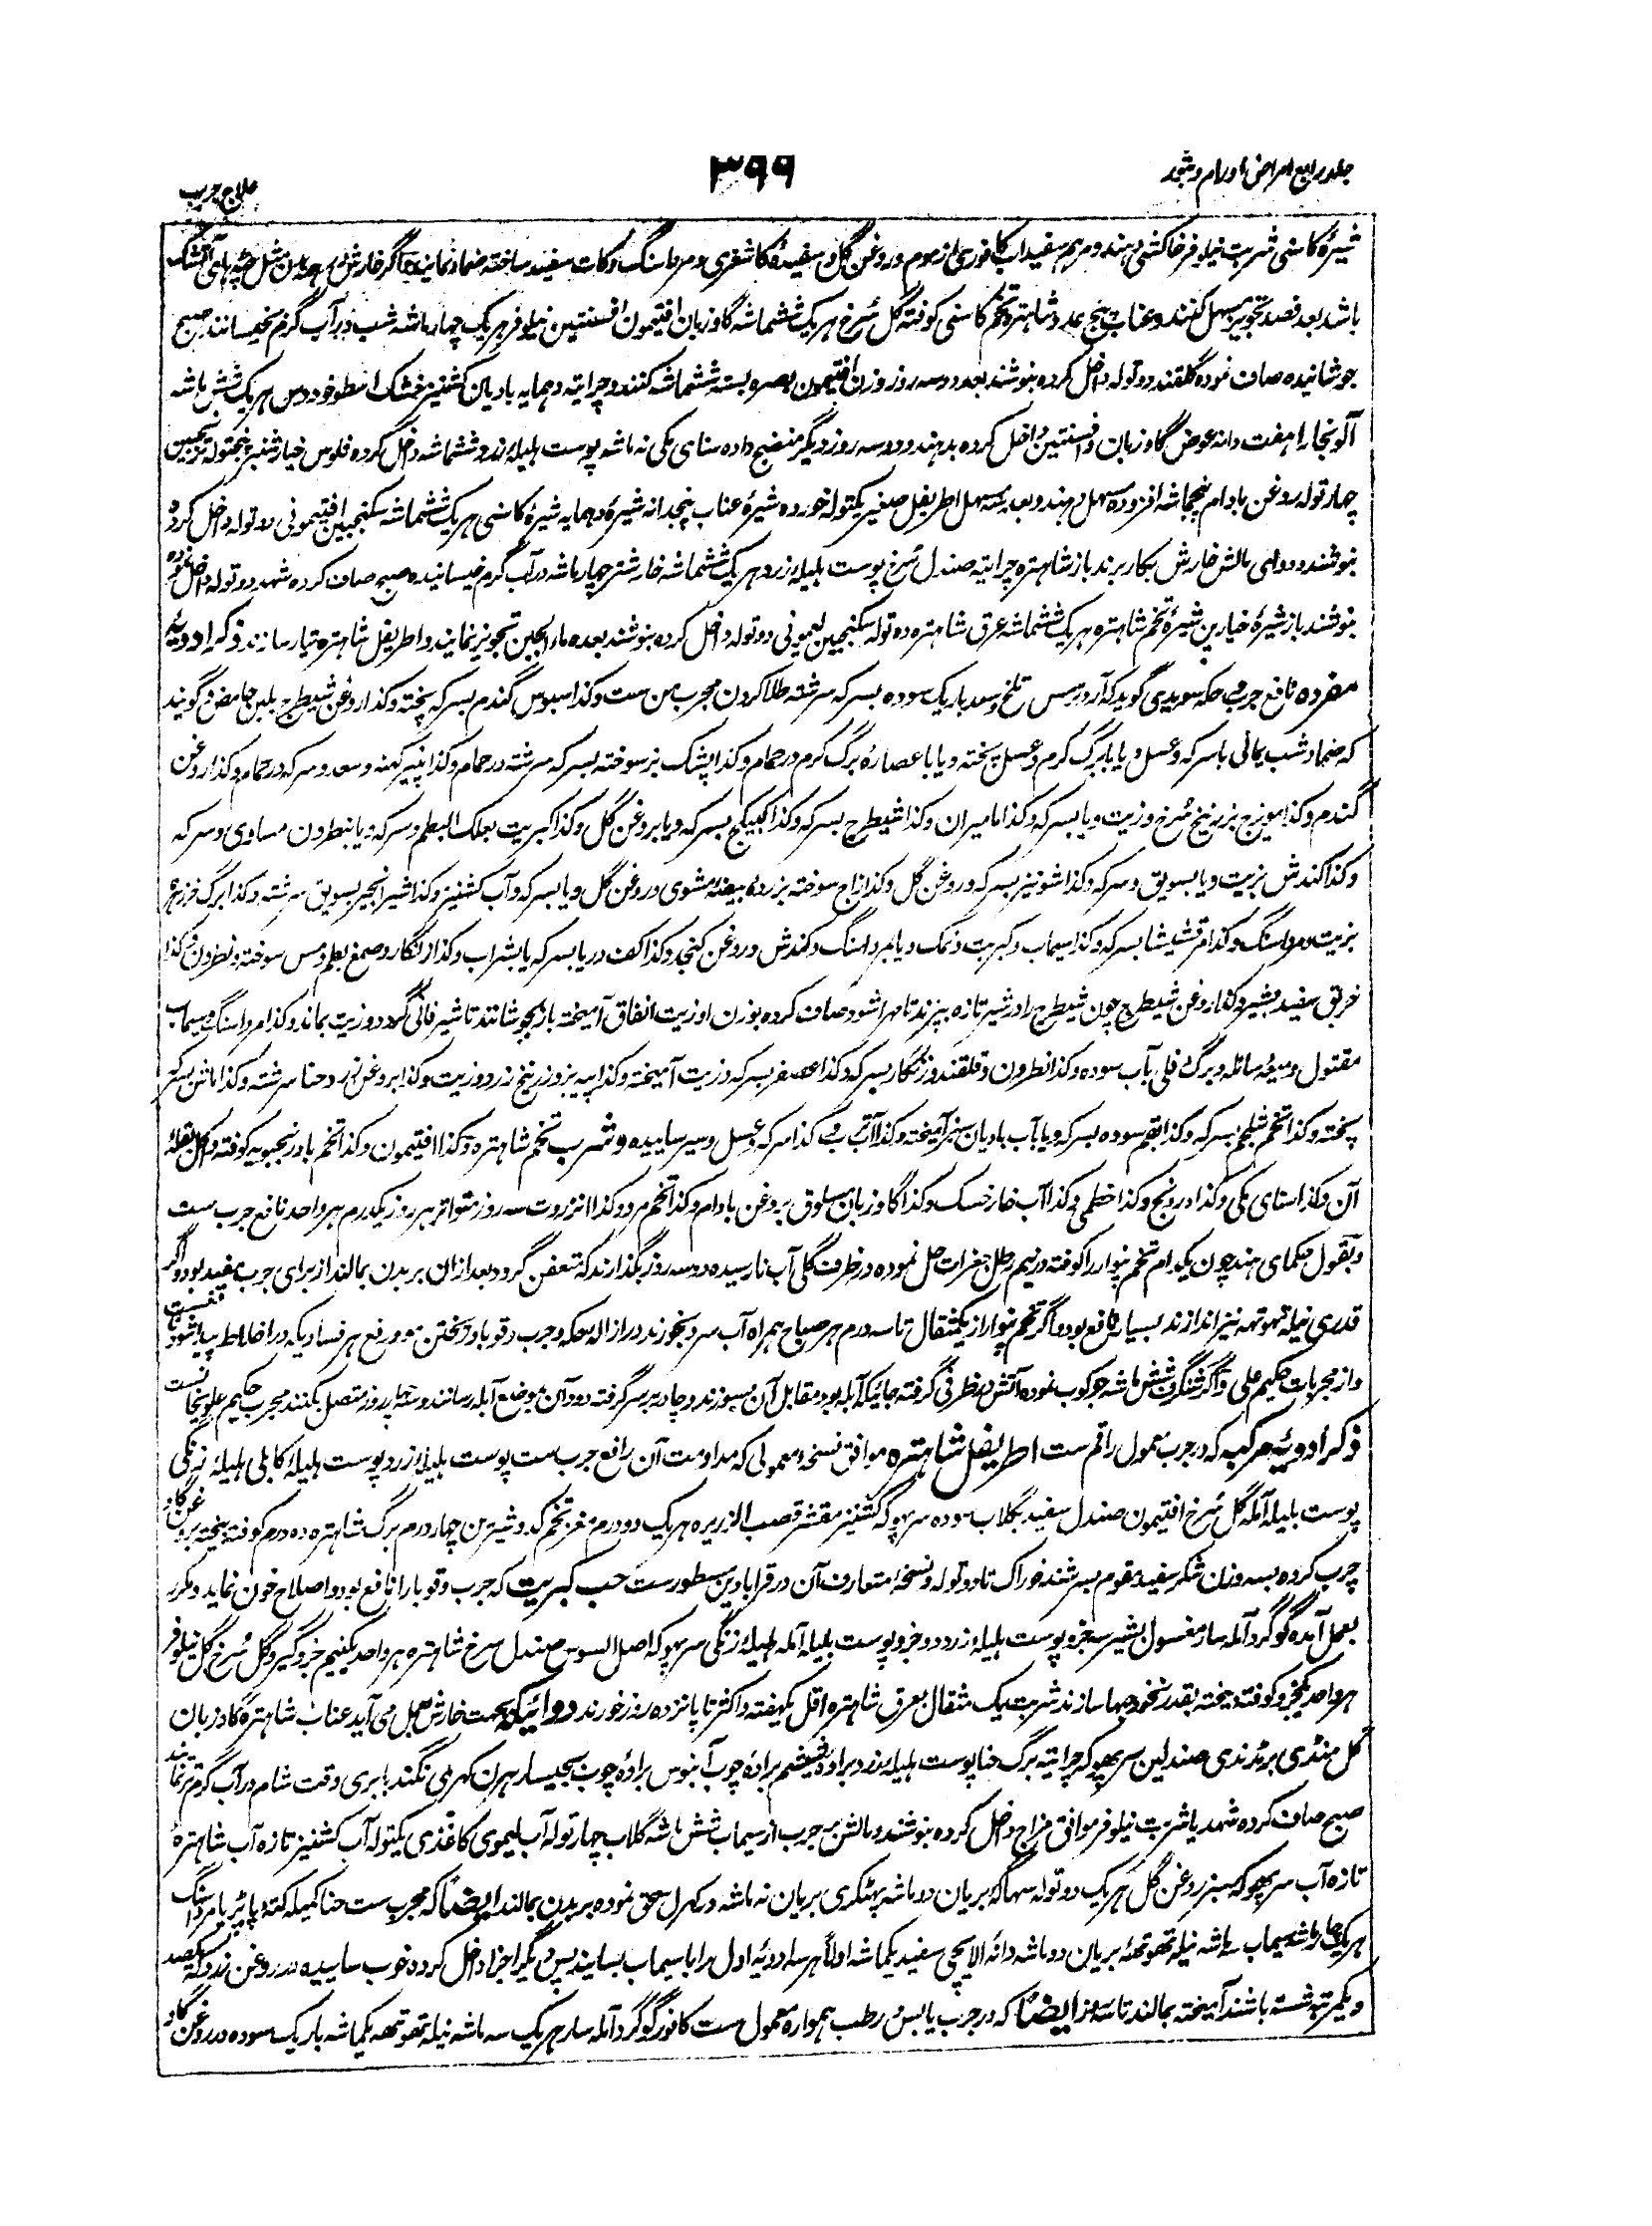 جلد رابع امراض اورام و بثور
۳۹۹
علاج جرب
شیرۀ کاسنی شربت نیلوفر خاکشی دهند و مرهم سفیداب کافوری از موم و روغن گل و سفیدۀ کاشغری و مردا سنگ و کات سفید ساخته ضماد نمایند و اگر خارش بدن مثل آتشک
باشد بعد فصد تجویز مسهل کنند و عناب پنج عدد شاهتره تخم کاسنی کوفته گل سرخ هر یک ششماشه گاوزبان افتیمون افسنتین نیلوفر هر یک چهار ماشه شب در آب گرم بخیسانند صبح
جوشانیده صاف نموده گلقند دو توله داخل کرده بنوشند بعد دو سه روز وزن افتیمون بصره بسته ششماشه کنند و چرایته دهمایه بادیان کشنیز خشک اسطوخودوس هر یک شش ماشه
آلو بخارا هفت دانه عوض گاوزبان و افسنتین داخل کرده بدهند و دو سه روز دیگر منضج داده سنای مکی نه ماشه پوست هلیلۀ زرد ششماشه داخل کرده فلوس خیارشنبر پنجتوله ترنجبین
چهار توله روغن بادام پنجماشه افزوده مسهل دهند و بعد مسهل اطریفل صغیر یکتوله خورده شیرۀ عناب پنجدانه شیرۀ دهمایه شیرۀ کاسنی هر یک ششماشه سکنجبین افتیمونی دو توله داخل کرده
بنوشند و دوای مالش خارش بکار برند باز شاهتره چرایته صندل سرخ پوست هلیله زرد هر یک ششماشه خارشتر چهار ماشه در آب گرم خیسانیده صبح صاف کرده شهد دو توله داخل نموده
بنوشند باز شیرۀ خیارین شیرۀ تخم شاهتره هر یک ششماشه عرق شاهتره ده توله سکنجبین لیمونی دو توله داخل کرده بنوشند بعده ماء الجبن تجویز نمایند و اطریفل شاهتره تیار سازند ذکر ادویۀ
مفرده نافع جرب و حکه سویدی گوید که آرد ترمس تلخ و سعد باریک سوده بسرکه سرشته طلا کردن مجرب من ست و کذا سبوس گندم بسرکه پخته و کذا روغن شیطرج بلبن حامض و گویند
که ضماد شب یمانی با سرکه و عسل و یا با برگ کرم و عسل پخته و یا با عصارۀ برگ کرم در حمام و کذا پشک بز سوخته بسرکه سرشته در حمام و کذا پنیر کهنه و سعد و سرکه در حمام و کذا روغن
گندم و کذا مویزج بزرنیخ سرخ و زیت و یا بسرکه و کذا مامیران و کذا شیطرج بسرکه و کذا کبیکج بسرکه و یا بروغن گل و کذا کبریت بعلک البطم و سرکه و یا بنطرون مساوی و سرکه
و کذا کندش بزیت و یا بسویق و سرکه و کذا شونیز بسرکه و روغن گل و کذا زاج سوخته بزردۀ بیضۀ مشوی و روغن گل و یا بسرکه و آب کشنیز و کذا شیر انجیر بسویق سرشته و کذا برگ خرزهره
بزیت و مرداسنگ و کذا مرقشیشا بسرکه و کذا سیماب و کبریت و نمک و یا بمرداسنگ و کندش و روغن کنجد و کذا کف دریا بسرکه یا بشراب و کذا زنگار و صمغ بطم و مس سوخته و نطرون و کذا
خربق سفید بشیر و کذا روغن شیطرج چون شیطرج را در شیر تازه بپزند تا مهرا شود صاف کرده بوزن او زیت انفاق آمیخته باز بجوشانند تا شیر فانی گردد و زیت بماند و کذا مرداسنگ و سیماب
مقتول و میعۀ سائله و برگ دفلی بآب سوده و کذا نطرون و قلقند و زنگار بسرکه و کذا عصفر بسرکه و زیت آمیخته و کذا پیه بز و زرنیخ زرد و زیت و کذا بروغن زرد حنا سرشته و کذا ماش بسرکه
پخته و کذا تخم شلجم بسرکه و کذا بقم سوده بسرکه و یا بآب بادیان سبز آمیخته و کذا آب کذا سرکه و عسل و سیر ساییده و شرب تخم شاهتره و کذا افتیمون و کذا تخم بادرنجبویه کوفته و اکل بقلۀ
آن و کذا سنای مکی و کذا درونج و کذا خطمی و کذا آب خارخسک و کذا گاوزبان مسلوق بروغن بادام و کذا تخم مرو و کذا انزروت سه روز متواتر هر روز یکدرم هر واحد نافع جرب ست
و بقول حکمای هند چون یکدام تخم پنوار را کوفته در نیم رطل جغرات حل نموده در ظرف گلی آب نارسیده دو سه روز بگذارند که متعفن گردد بعد ازان بر بدن بمالند از برای جرب مفید بود و اگر
قدری نیله تهوتهه نیز اندازند بسیار نافع بود و اگر تخم پنوار از یکمثقال تا سه درم هر صباح همراه آب سرد بخورند در ازاله حکه و جرب و قوبا و ریختن مو و رفع هر فسادیکه در اخلاط پیدا شود نافع ست
و از مجربات حکیم علی و اگر شنگرف شش ماشه جوکوب نموده آتش در ظرفی گرفته جائیکه آبله بود مقابل آن بسوزند و چادر بر سر گرفته دود آن بموضع آبله رسانند و سه چهار روز متصل بکنند مجرب حکیم علویخانست
ذکر ادویۀ مرکبه که در جرب معمول راقم ست اطریفل شاهتره موافق نسخۀ معمولی که مداومت آن رافع جرب ست پوست هلیلۀ زرد پوست هلیلۀ کابلی هلیلۀ زنگی
پوست بلیله آمله گل سرخ افتیمون صندل سفید بگلاب سوده سرپهوکه کشنیز مقشر قصب الذریره هر یک دو درم مغز تخم کدو شیرین چهار درم برگ شاهتره ده درم کوفته بیخته بروغن گاو
چرب کرده بسه وزن شکر سفید مقوم بسرشند خوراک تا دو توله و نسخۀ متعارف آن در قرابادین مسطورست حب کبریت که جرب و قوبا را نافع بود و اصلاح خون نماید و مکرر
بعمل آمده گوگرد آمله سار مغسول بشیر سه جزو پوست هلیلۀ زرد دو جزو پوست بلیله آمله هلیلۀ زنگی سرپهوکه اصل السوس صندل سرخ شاهتره هر واحد یکنیم جزو گیرو گل سرخ گل نیلوفر
هر واحد یکجزو کوفته بیخته بقدر نخود حبها سازند شربت یک مثقال بعرق شاهتره اقل یکهفته و اکثر تا پانزده روز خورند دوائیکه بجهت خارش بعمل می آید عناب شاهتره گاوزبان
گل منڈی برمڈنڈی صندلین سرپهوکه چرایته برگ حنا پوست هلیله زرد برادۀ شیشم برادۀ چوب آبنوس برادۀ چوب بجیسار هرن کهری نگند بابری وقت شام در آب گرم تر نمایند
صبح صاف کرده شهد یا شربت نیلوفر موافق مزاج داخل کرده بنوشند و مالش بر جرب از سیماب شش ماشه گلاب چهار توله آب لیموی کاغذی یکتوله آب کشنیز تازه آب شاهترۀ
تازه آب سرپهوکه سبز روغن گل هر یک دو توله سهاگۀ بریان دو ماشه پهٹکری بریان نه ماشه در کهرل سحق نموده بر بدن بمالند ایضاً که مجرب ست حنا کمیله کتهه پاپڑیا مرداسنگ
هر یک چهار ماشه سیماب سه ماشه نیله تهوتهۀ بریان دو ماشه دانۀ الایچی سفید یکماشه اولاً هر سه ادویۀ اول را با سیماب بسایند پس دیگر اجزا داخل کرده خوب ساییده در روغن زرد که یکصد
و یکمرتبه شسته باشند آمیخته بمالند تا سه روز ایضاً که در جرب یابس و رطب همواره معمول ست کافور گوگرد آمله سار هر یک سه ماشه نیله تهوتهه یکماشه باریک سوده در روغن گاو